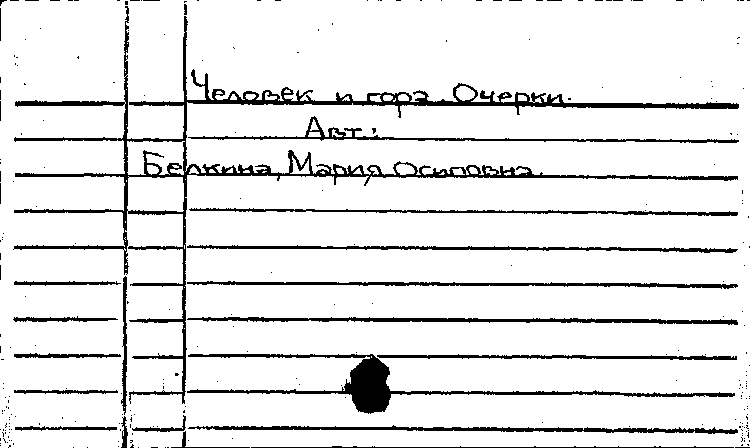 Человек и гора. Очерки.
Авт.:
Белкина, Мария Осиповна.